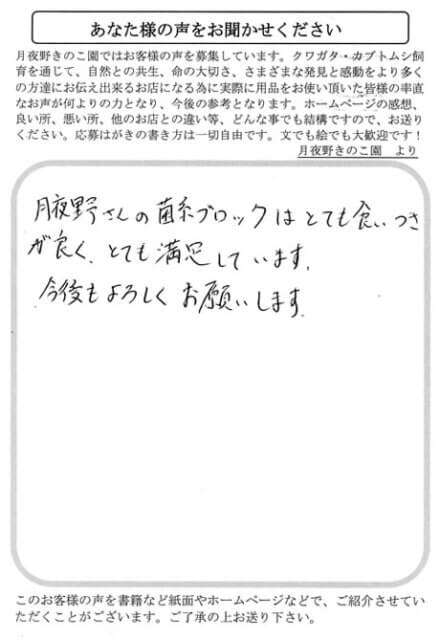 あなた様の声をお聞かせください
月夜野きのこ園ではお客様の声を募集しています。クワガタ・カブトムシ飼
育を通じて、自然との共生、命の大切さ、さまざまな発見と感動をより多く
の方達にお伝え出来るお店になる為に実際に用品をお使い頂いた皆様の率直
なお声が何よりの力となり、今後の参考となります。ホームページの感想、
良い所、悪い所、他のお店との違い等、どんな事でも結構ですので、お送り
ください。応募はがきの書き方は一切自由です。文でも絵でも大歓迎です！
月夜野きのこ園　より
月夜野さんの菌糸ブロックはとても食いつき
が良く、とても満足しています。
今後もよろしくお願いします。
このお客様の声を書籍など紙面やホームページなどで、ご紹介させてい
ただくことがございます。ご了承の上お送り下さい。